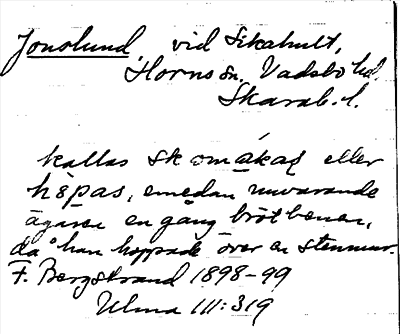 Jonslund, vid Sikahult,
Horns sn. Vadsbo hd.
Skarab. l.
kallas skomakaḍ eller
hèpas, emedan nuvarande
ägaren en gång bröt benen,
då han hoppade över en stenmur.
F. Bergstrand 1898-99
Ulma 111:319